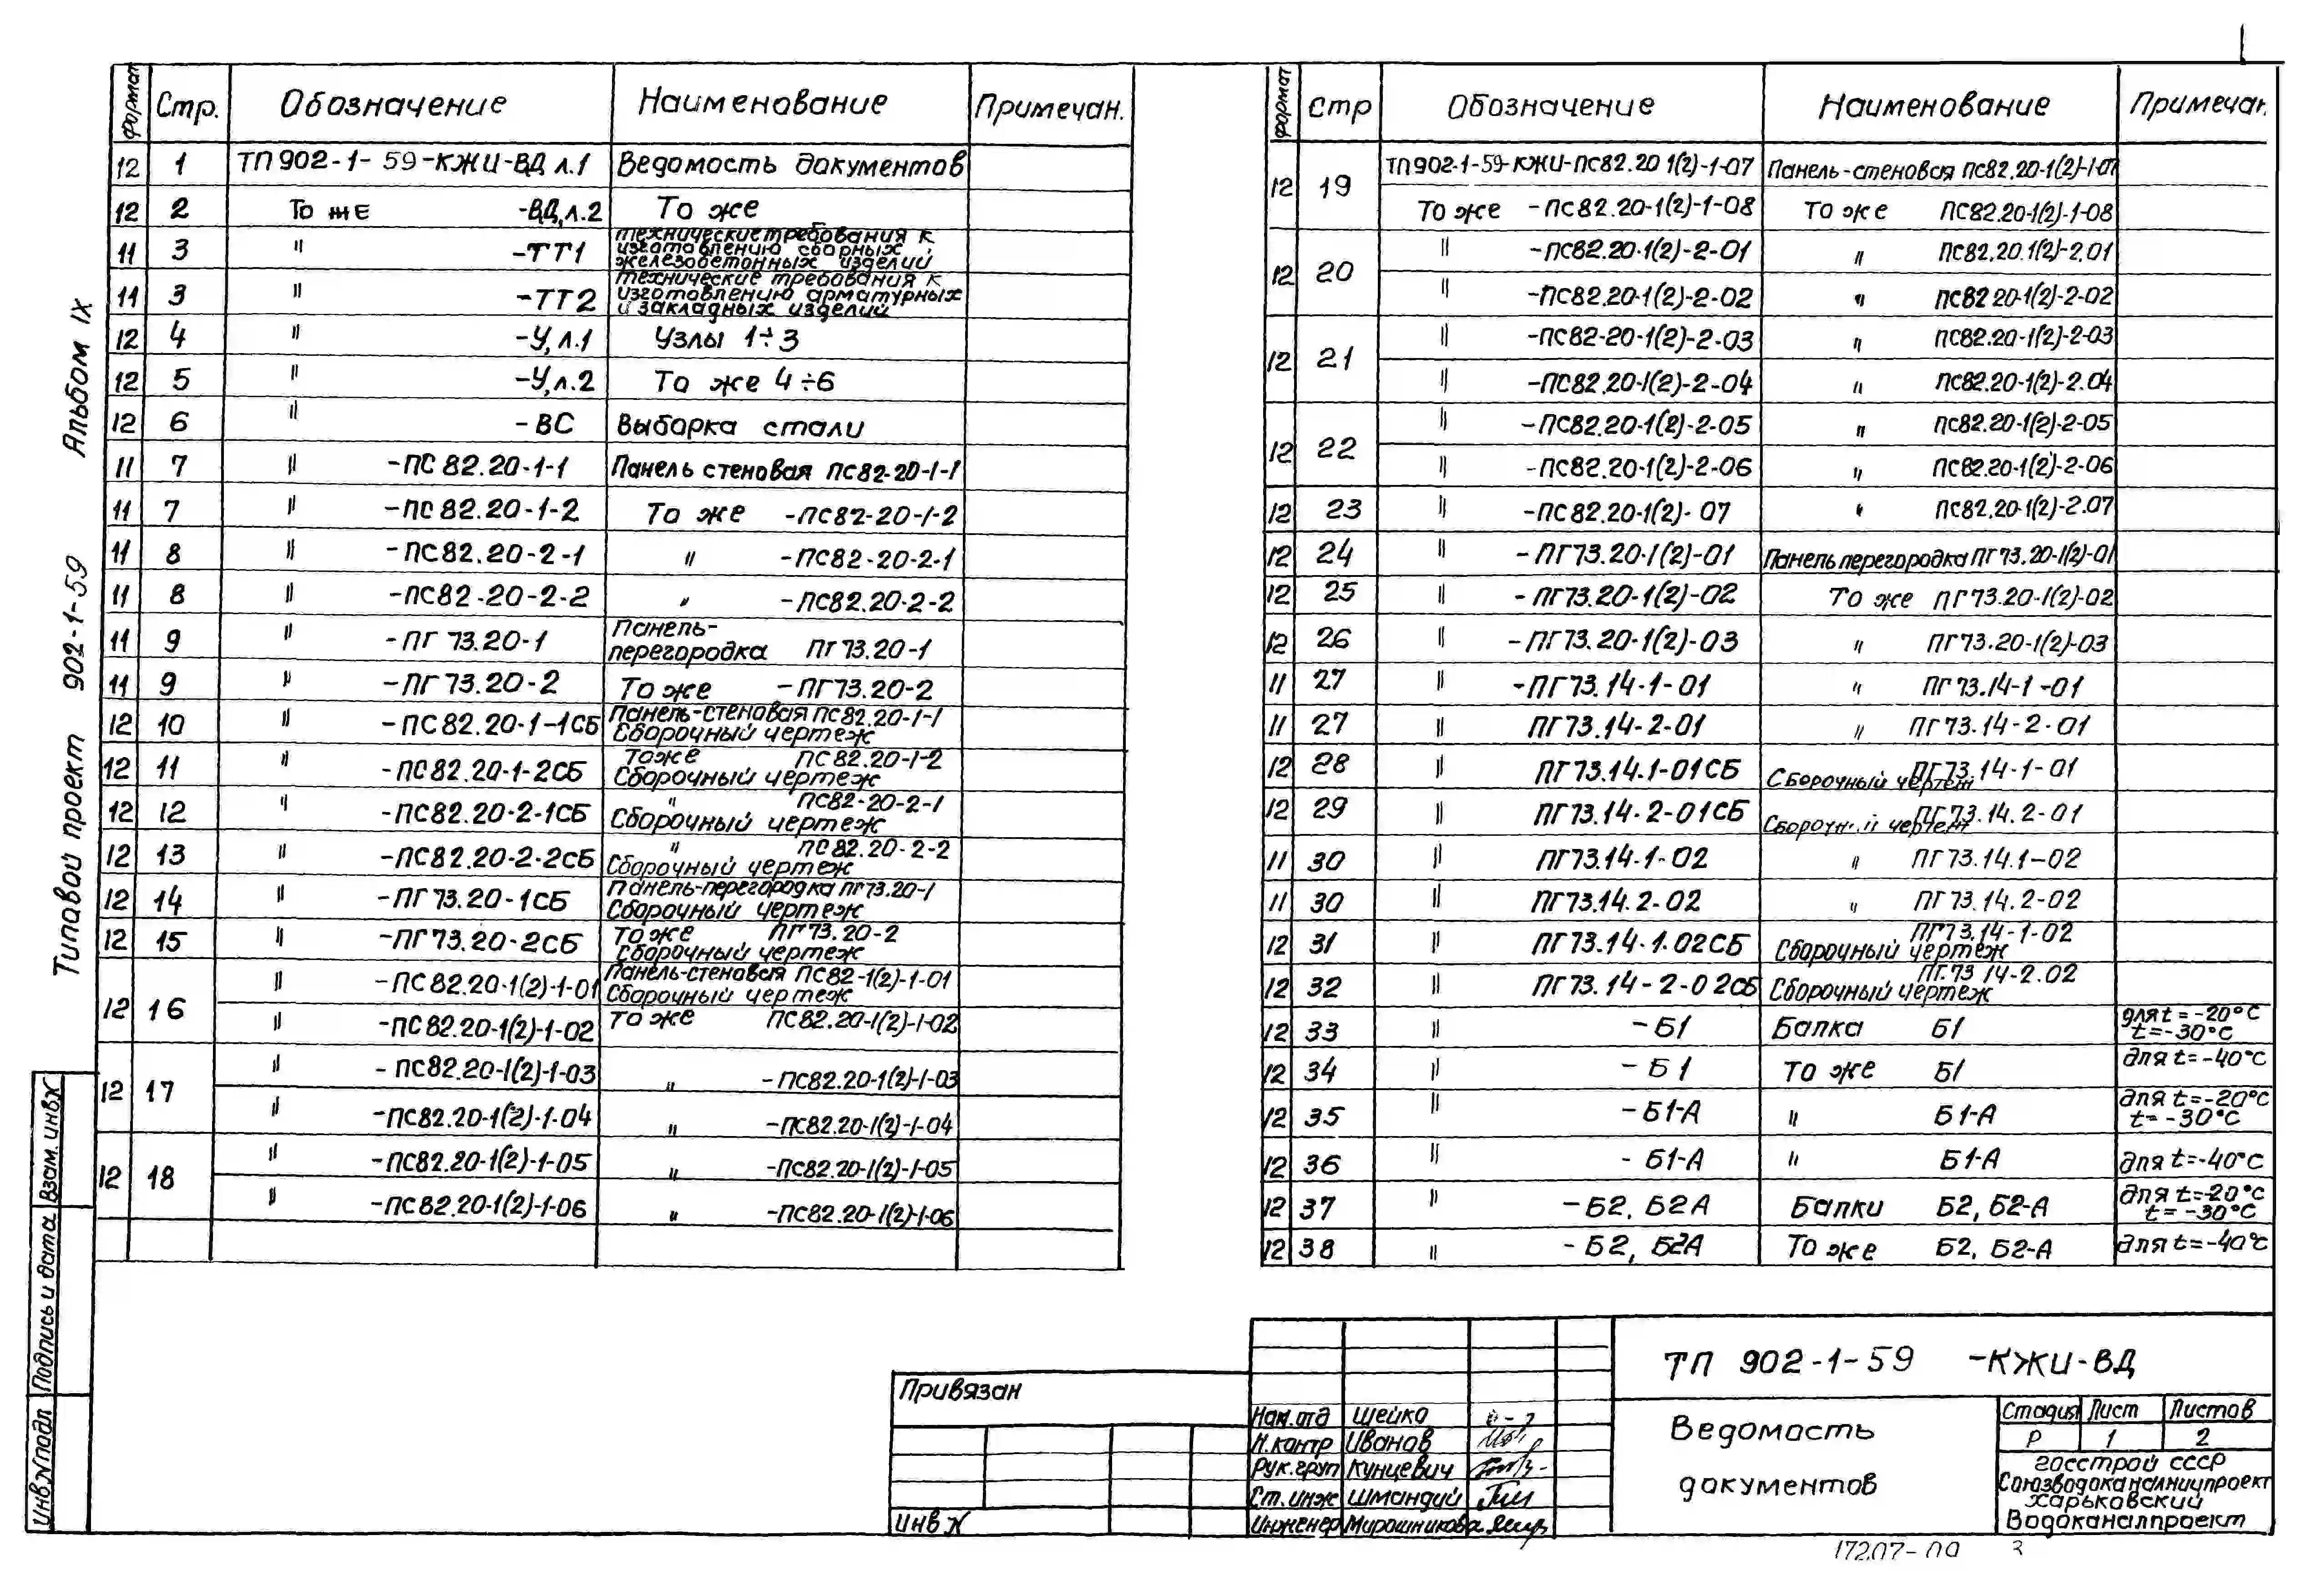 Типовой проект 902-1-59 Альбом IX
формат Стр. Обозначение Наименование Примечан.
12 1 ТП902-1-59-КЖИ-ВД л.1 Ведомость документов
12 2 То же -ВД,л.2 То же
11 3 " -ТТ1 технические требования к
изготовлению сборных
железобетонных изделий
11 3 " -ТТ2 технические требования к
изготовлению арматурных
и закладных изделий
12 4 " -У,л.1 Узлы 1÷3
12 5 " -У,л.2 То же 4÷6
12 6 " -ВС Выборка стали
11 7 " -ПС82.20-1-1 Панель стеновая ПС82-20-1-1
11 7 " -ПС82.20-1-2 То же -ПС82-20-1-2
11 8 " -ПС82.20-2-1 " -ПС82-20-2-1
11 8 " -ПС82-20-2-2 " -ПС82.20-2-2
11 9 " -ПГ73.20-1 Панель-
перегородка ПГ73.20-1
11 9 " -ПГ73.20-2 То же -ПГ73.20-2
12 10 " -ПС82.20-1-1СБ Панель-стеновая ПС82.20-1-1
Сборочный чертеж
12 11 " -ПС82.20-1-2СБ то же ПС82.20-1-2
Сборочный чертеж
12 12 " -ПС82.20-2-1СБ " ПС82-20-2-1
Сборочный чертеж
12 13 " -ПС82.20-2-2СБ " ПС82.20-2-2
Сборочный чертеж
12 14 " -ПГ73.20-1СБ Панель-перегородка ПГ73.20-1
Сборочный чертеж
12 15 " -ПГ73.20-2СБ то же ПГ73.20-2
Сборочный чертеж
12 16 " -ПС82.20-1(2)-1-01 Панель-стеновая ПС82-1(2)-1-01
Сборочный чертеж
" -ПС82.20-1(2)-1-02 то же ПС82.20-1(2)-1-02
12 17 " -ПС82.20-1(2)-1-03 " -ПС82.20-1(2)-1-03
" -ПС82.20-1(2)-1-04 " -ПС82.20-1(2)-1-04
12 18 " -ПС82.20-1(2)-1-05 " -ПС82.20-1(2)-1-05
" -ПС82.20-1(2)-1-06 " -ПС82.20-1(2)-1-06
формат Стр Обозначение Наименование Примечан.
12 19 ТП902-1-59-КЖИ-ПС82.20 1(2)-1-07 Панель-стеновая ПС82.20-1(2)-1-07
То же -ПС82.20-1(2)-1-08 То же ПС82.20-1(2)-1-08
12 20 " -ПС82.20-1(2)-2-01 " ПС82.20.1(2)-2.01
" -ПС82.20-1(2)-2-02 " ПС82 20-1(2)-2-02
12 21 " -ПС82-20-1(2)-2-03 " ПС82.20-1(2)-2-03
" -ПС82.20-1(2)-2-04 " ПС82.20-1(2)-2.04
12 22 " -ПС82.20-1(2)-2-05 " ПС82.20-1(2)-2-05
" -ПС82.20-1(2)-2-06 " ПС82.20-1(2)-2-06
12 23 " -ПС82.20-1(2)-07 " ПС82.20-1(2)-2.07
12 24 " -ПГ73.20-1(2)-01 Панель перегородка ПГ73.20-1(2)-01
12 25 " -ПГ73.20-1(2)-02 То же ПГ73.20-1(2)-02
12 26 " -ПГ73.20-1(2)-03 " ПГ73.20-1(2)-03
11 27 " -ПГ73.14-1-01 " ПГ73.14-1-01
11 27 " ПГ73.14-2-01 " ПГ73.14-2-01
12 28 " ПГ73.14.1-01СБ ПГ73.14-1-01
Сборочный чертеж
12 29 " ПГ73.14.2-01СБ ПГ73.14.2-01
Сборочный чертеж
11 30 " ПГ73.14-1-02 " ПГ73.14.1-02
11 30 " ПГ73.14.2-02 " ПГ73.14.2-02
12 31 " ПГ73.14-1.02СБ ПГ73.14-1-02
Сборочный чертеж
12 32 " ПГ73.14-2-02СБ ПГ.73 14-2.02
Сборочный чертеж
12 33 " -Б1 Балка Б1 для t=-20°С
t=-30°С
12 34 " -Б1 То же Б1 для t=-40°С
12 35 " -Б1-А " Б1-А для t=-20°С
t=-30°С
12 36 " -Б1-А " Б1-А для t=-40°С
12 37 " -Б2, Б2А Балки Б2, Б2-А для t=-20°С
t=-30°С
12 38 " -Б2, Б2А То же Б2, Б2-А для t=-40°С
Инв№подл Подпись и дата Взам.инв№
Привязан
Инв №
Нам.отд Шейко
Н.контр Иванов
Рук.груп Кунцевич
Ст.инж Шмандий
Инженер Мирошникова
ТП 902-1-59 -КЖИ-ВД
Ведомость
документов
Стадия Лист Листов
Р 1 2
госстрой ссср
Союзводоканалниипроект
харьковский
Водоканалпроект
17207-09 3